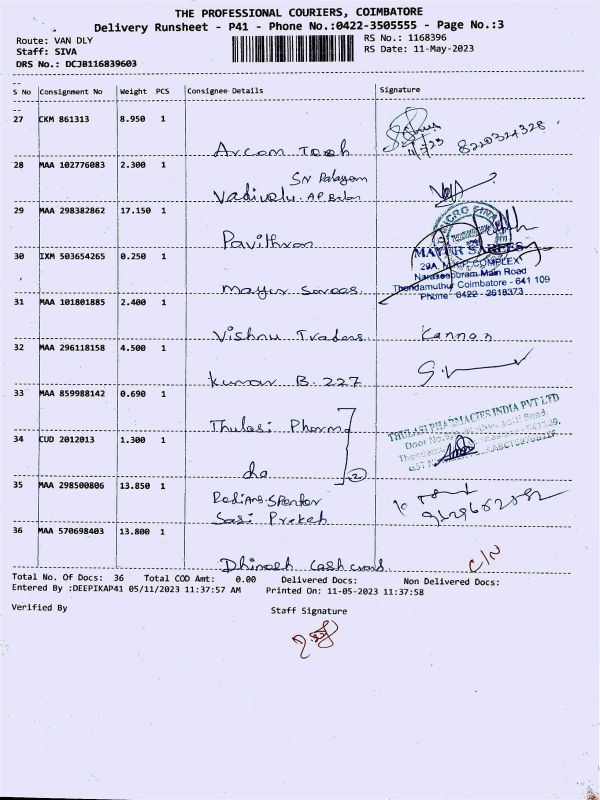 THE PROFESSIONAL COURIERS, COIMBATORE
Delivery Runsheet - P41 - Phone No.:0422-3505555 - Page No.:3
Route: VAN DLY RS No.: 1168396
Staff: SIVA RS Date: 11-May-2023
DRS No.: DCJB116839603
S No Consignment No Weight PCS Consignee Details Signature
27 CKM 861313 8.950 1
Arcom 8220324328
28 MAA 102776083 2.300 1
Vadivelu
29 MAA 298382862 17.150 1
Pavithran
MAYUR SAREES
30 IXM 503654265 0.250 1
29A, COMPLEX
Naraseepuram Main Road
Mayur Sarees Thondamuthur Coimbatore - 641 109
Phone: 0422 - 2618373
31 MAA 101801885 2.400 1
Vishnu Traders Kannan
32 MAA 296118158 4.500 1
Kumar B. 227
33 MAA 859988142 0.690 1
Thulasi Pharma THULASI PHARMACIES INDIA PVT LTD
34 CUD 2012013 1.300 1
do 2
35 MAA 298500806 13.850 1
36 MAA 570698403 13.800 1
Dhinesh C/N
Total No. Of Docs: 36 Total COD Amt: 0.00 Delivered Docs: Non Delivered Docs:
Entered By :DEEPIKAP41 05/11/2023 11:37:57 AM Printed On: 11-05-2023 11:37:58
Verified By Staff Signature